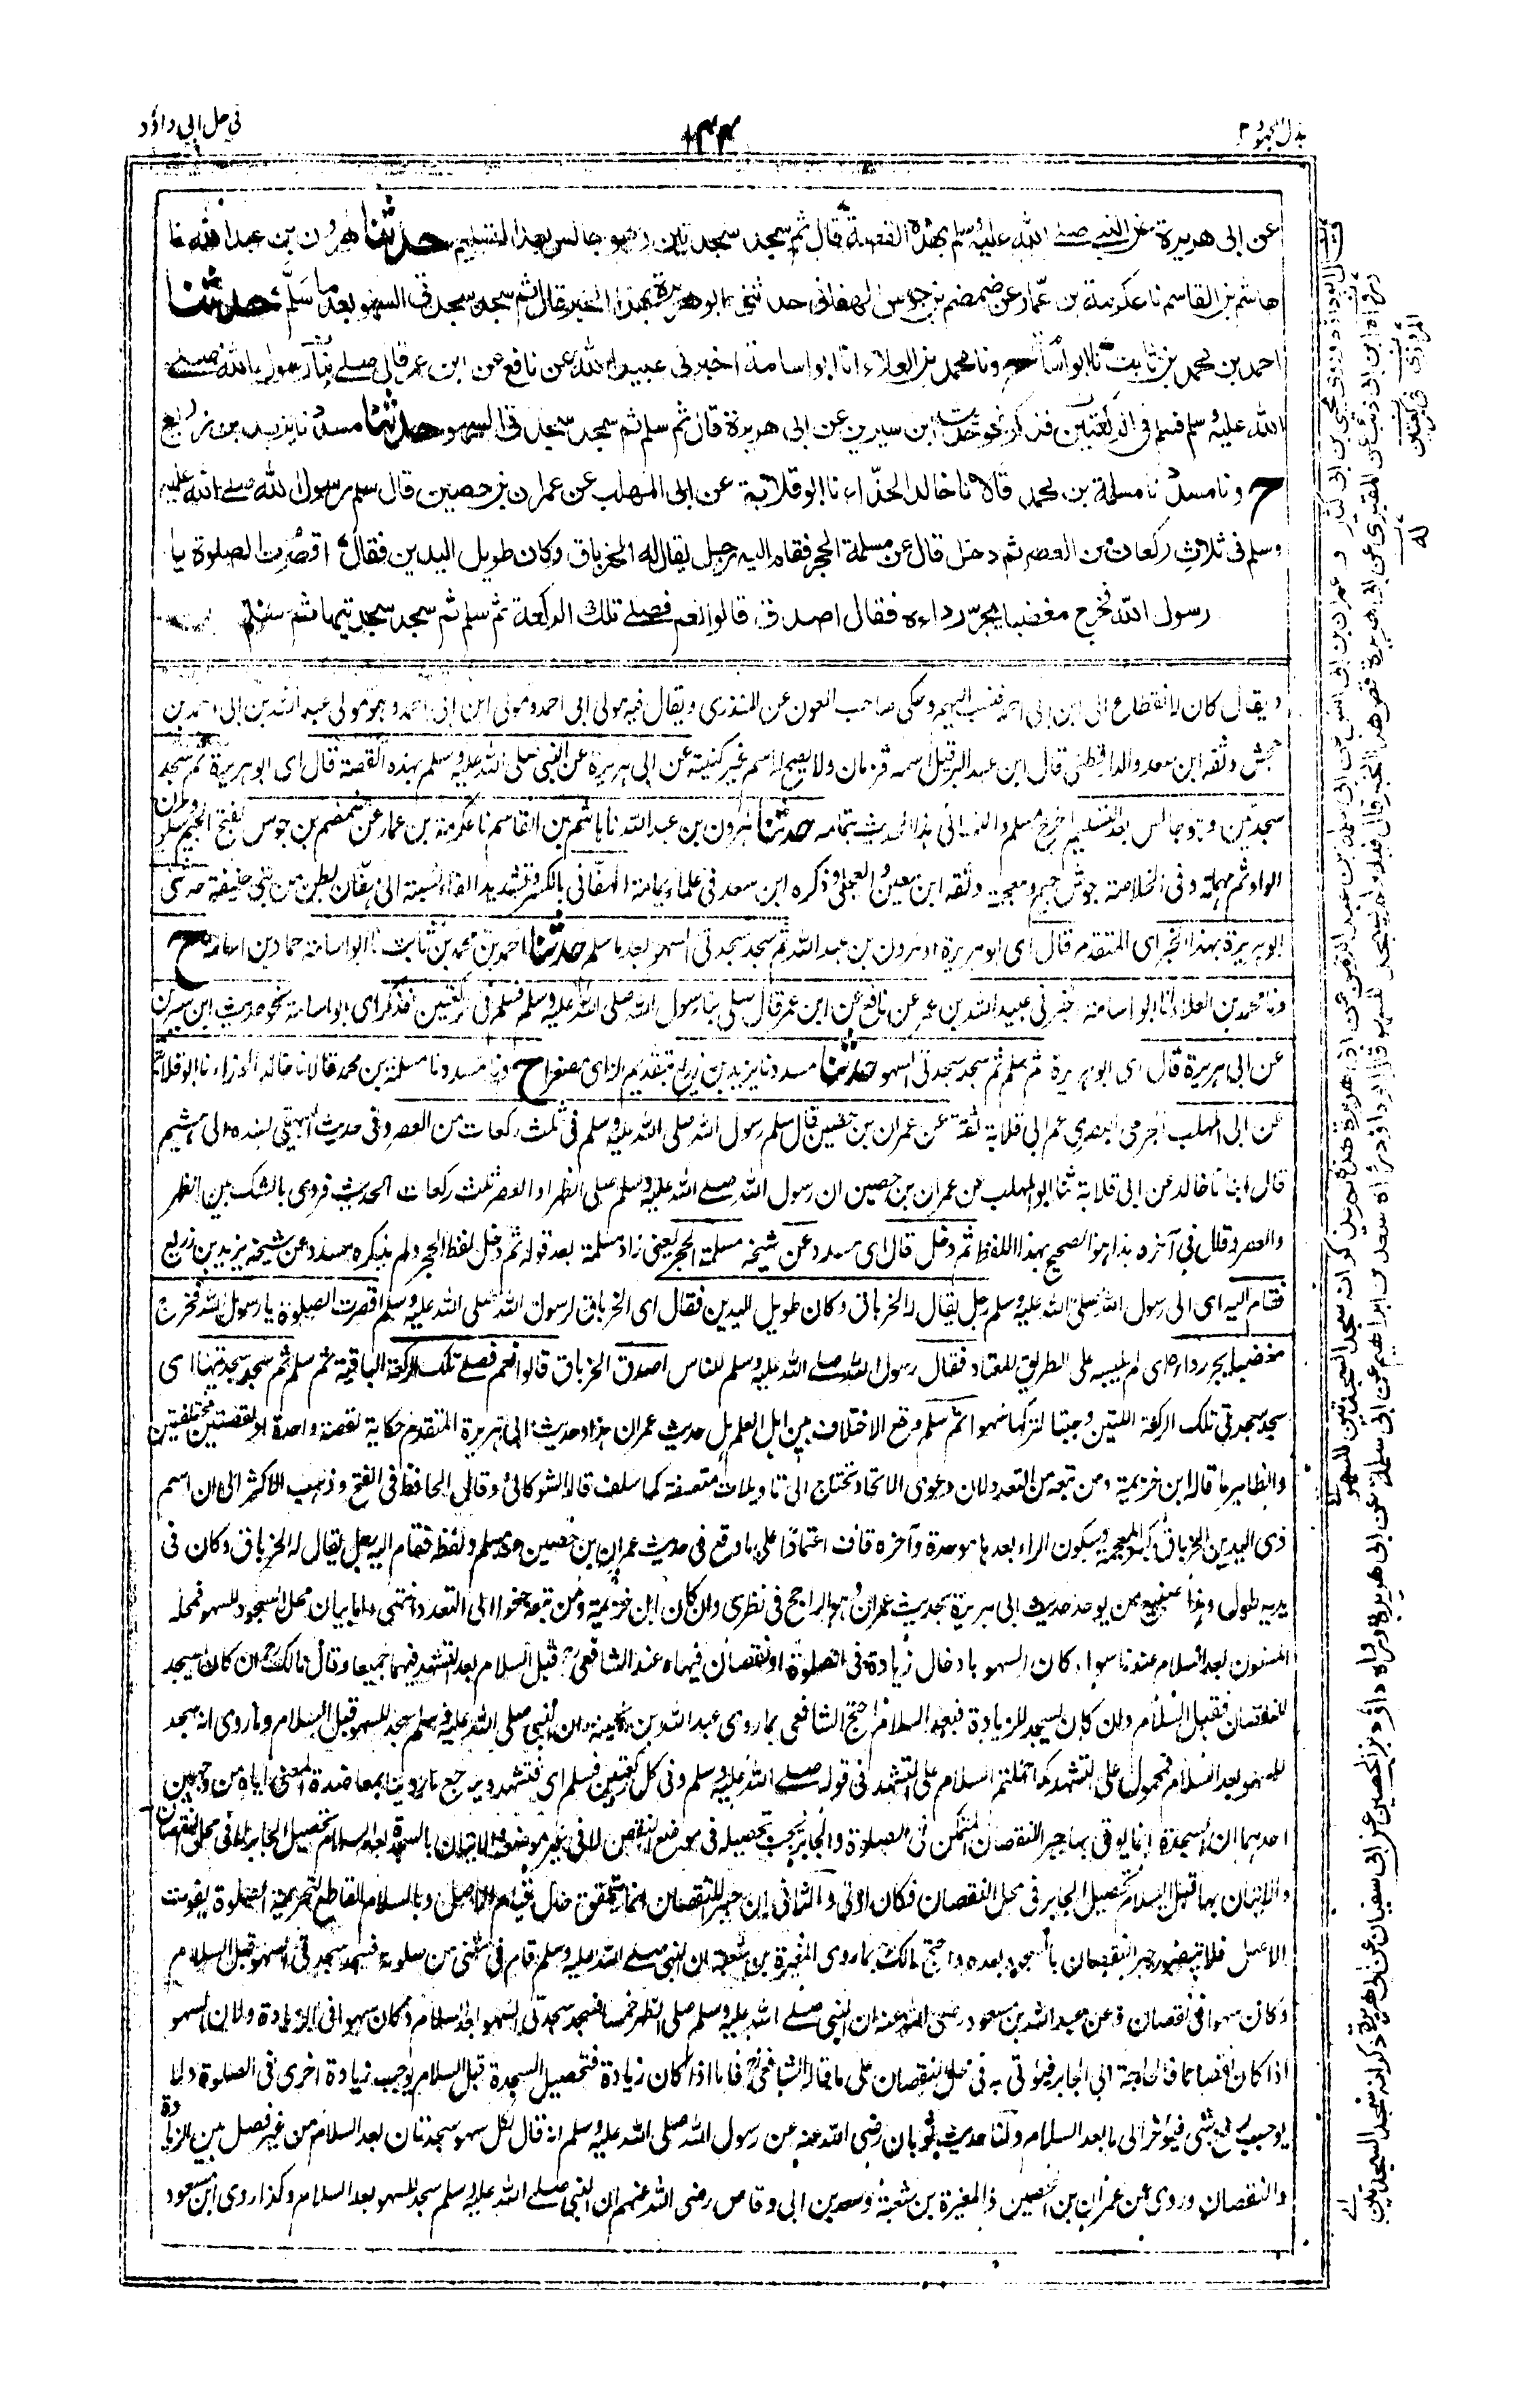 بذل المجهود ٢
١٤٤
في حل ابي داؤد
عن ابى هريرة عن النبى صلى الله عليه وسلم بهذه القصة قال ثم سجد سجدتين وهو جالس بعد التسليم حدثنا هرون بن عبد الله نا
هاشم بن القاسم نا عكرمة بن عمار عن ضمضم بن جوس الهفانى حدثنى ابو هريرة بهذا الخبر قال ثم سجد سجدتى السهو بعد ما سلم حدثنا
احمد بن محمد بن ثابت نا ابو اسامة ح ونا محمد بن العلاء انا ابو اسامة اخبرنى عبيد الله عن نافع عن ابن عمر قال صلى بنا رسول الله صلى
الله عليه وسلم فسلم فى الركعتين فذكر نحو حديث ابن سيرين عن ابى هريرة قال ثم سلم ثم سجد سجدتى السهو حدثنا مسدد نا يزيد بن زريع
ح ونا مسدد نا مسلمة بن محمد قالا نا خالد الحذاء نا ابو قلابة عن ابى المهلب عن عمران بن حصين قال سلم رسول الله صلى الله عليه
وسلم فى ثلاث ركعات من العصر ثم دخل قال عن مسلمة الحجر فقام اليه رجل يقال له الخرباق وكان طويل اليدين فقال اقصرت الصلوة يا
رسول الله فخرج مغضبا يجر رداءه فقال اصدق قالوا نعم فصلى تلك الركعة ثم سلم ثم سجد سجدتيها ثم سلم
ويقال كان لانقطاع الى ابن ابى احمد فنسب اليهم وحكى صاحب العون عن المنذرى ويقال فيه مولى ابى احمد ومولى ابن ابى احمد وهو مولى عبد الله بن ابى احمد بن
جحش وثقه ابن سعد والدارقطنى قال ابن عبد البر قيل اسمه قزمان ولا يصح له اسم غير كنيته عن ابى هريرة عن النبى صلى الله عليه وسلم بهذه القصة قال اى ابو هريرة ثم سجد
سجدتين وهو جالس بعد التسليم اخرج مسلم والنسائى هذا الحديث بتمامه حدثنا هرون بن عبد الله نا هاشم بن القاسم نا عكرمة بن عمار عن ضمضم بن جوس بفتح الجيم وسكون
الواو ثم مهملة وفى الخلاصة جوش بجيم ومعجمة وثقه ابن معين والعجلى وذكره ابن سعد فى علماء يمامة الهفانى بالكسر وتشديد الفاء نسبة الى هفان بطن من بنى حنيفة حدثنى
ابو هريرة بهذا الخبر اى المتقدم قال اى ابو هريرة او هرون بن عبد الله ثم سجد سجدتى السهو بعد ما سلم حدثنا احمد بن محمد بن ثابت نا ابو اسامة حماد بن اسامة ح
ونا محمد بن العلاء انا ابو اسامة اخبرنى عبيد الله بن عمر عن نافع عن ابن عمر قال صلى بنا رسول الله صلى الله عليه وسلم فسلم فى الركعتين فذكر اى ابو اسامة نحو حديث ابن سيرين
عن ابى هريرة قال اى ابو هريرة ثم سلم ثم سجد سجدتى السهو حدثنا مسدد نا يزيد بن زريع بتقديم الزاى مصغرا ح ونا مسدد نا مسلمة بن محمد قالا نا خالد الحذاء نا ابو قلابة
عن ابى المهلب الجرمى البصرى عم ابى قلابة ثقة عن عمران بن حصين قال سلم رسول الله صلى الله عليه وسلم فى ثلث ركعات من العصر وفى حديث البيهقى بسنده الى هشيم
قال انبا نا خالد عن ابى قلابة ثنا ابو المهلب عن عمران بن حصين ان رسول الله صلى الله عليه وسلم صلى الظهر او العصر ثلث ركعات الحديث فروى بالشك بين الظهر
والعصر وقال فى آخره هذا هو الصحيح بهذا اللفظ ثم دخل قال اى مسدد عن شيخه مسلمة الحجر يعنى زاد مسلمة بعد قوله ثم دخل لفظ الحجر ولم يذكره مسدد عن شيخه يزيد بن زريع
فقام اليه اى الى رسول الله صلى الله عليه وسلم رجل يقال له الخرباق وكان طويل اليدين فقال اى الخرباق لرسول الله صلى الله عليه وسلم اقصرت الصلوة يا رسول الله فخرج
مغضبا يجر رداءه اى لم يلبسه على الطريق المعتاد فقال رسول الله صلى الله عليه وسلم للناس اصدق الخرباق قالوا نعم فصلى تلك الركعة الباقية ثم سلم ثم سجد سجدتيها اى
سجد سجدتى تلك الركعة اللتين وجبتا لتركها سهوا ثم سلم وقع الاختلاف بين اهل العلم هل حديث عمران هذا وحديث ابى هريرة المتقدم حكاية لقصة واحدة او لقصتين مختلفتين
والظاهر ما قاله ابن خزيمة ومن تبعه من التعدد لان دعوى الاتحاد تحتاج الى تاويلات متعسفة كما سلف قاله الشوكانى وقال الحافظ فى الفتح وذهب الاكثر الى ان اسم
ذى اليدين الخرباق بكسر المعجمة وسكون الراء بعدها موحدة وآخره قاف اعتمادا على ما وقع فى حديث عمران بن حصين عند مسلم ولفظه فقام اليه رجل يقال له الخرباق وكان فى
يديه طول وهذا صنيع من يوحد حديث ابى هريرة بحديث عمران وهو الراجح فى نظرى وان كان ابن خزيمة ومن تبعه جنحوا الى التعدد انتهى واما بيان محل السجود للسهو فمحله
المسنون بعد السلام عندنا سواء كان السهو بادخال زيادة فى الصلوة او نقصان فيها وعند الشافعى قبل السلام بعد التشهد فيهما جميعا وقال مالك ان كان يسجد
للنقصان فقبل السلام وان كان يسجد للزيادة فبعد السلام احتج الشافعى بما روى عبد الله بن بحينة ان النبى صلى الله عليه وسلم سجد للسهو قبل السلام وما روى انه سجد
للسهو بعد السلام فمحمول على التشهد كما حملتم السلام على التشهد فى قوله صلى الله عليه وسلم وفى كل ركعتين فسلم اى فتشهد ويرجح ما روينا بمعاضدة المعنى اياه من وجهين
احدهما ان السجدة انما يؤتى بها جبرا للنقصان المتمكن فى الصلوة والجابر يجب تحصيله فى موضع النقص لا فى غير موضعه والاتيان بالسجدة بعد السلام تحصيل الجابر لا فى محل النقصان
والاتيان بها قبل السلام تحصيل الجابر فى محل النقصان فكان اولى والثانى ان جبر النقصان انما يتحقق حال قيام الاصل وبالسلام القاطع لتحريمة الصلوة يفوت
الاصل فلا يتصور جبر النقصان بالسجود بعده واحتج مالك بما روى المغيرة بن شعبة ان النبى صلى الله عليه وسلم قام فى مثنى من صلوته فسجد سجدتى السهو قبل السلام
وكان سهوا فى نقصان وعن عبد الله بن مسعود رضى الله عنه ان النبى صلى الله عليه وسلم صلى الظهر خمسا فسجد سجدتى السهو بعد السلام وكان سهوا فى الزيادة ولان السهو
اذا كان نقصانا فالحاجة الى الجابر فيؤتى به فى محل النقصان على ما قاله الشافعى فاما اذا كان زيادة فتحصيل السجدة قبل السلام يوجب زيادة اخرى فى الصلوة ولا
يوجب رفع شئ فيؤخر الى ما بعد السلام ولنا حديث ثوبان رضى الله عنه عن رسول الله صلى الله عليه وسلم انه قال لكل سهو سجدتان بعد السلام من غير فصل بين الزيادة
والنقصان وروى عن عمران بن الحصين والمغيرة بن شعبة وسعد بن ابى وقاص رضى الله عنهم ان النبى صلى الله عليه وسلم سجد للسهو بعد السلام وكذا روى ابن مسعود